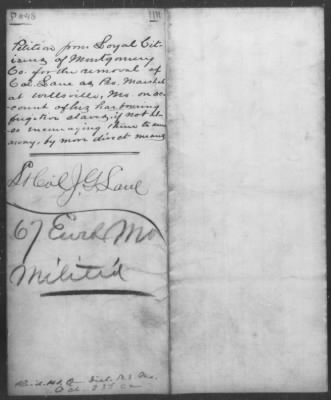 Petition from Loyal Cit-
izens of Montgomery
Co. for the removal of
Col. Lane as Pro. Marshal
at Wellsville, Mo. on ac-
count of his harbouring
fugitive slaves, if not al-
so encouraging them to run
away, by more direct means
Lt Col J. G. Lane
67 Enrd Mo
Militia